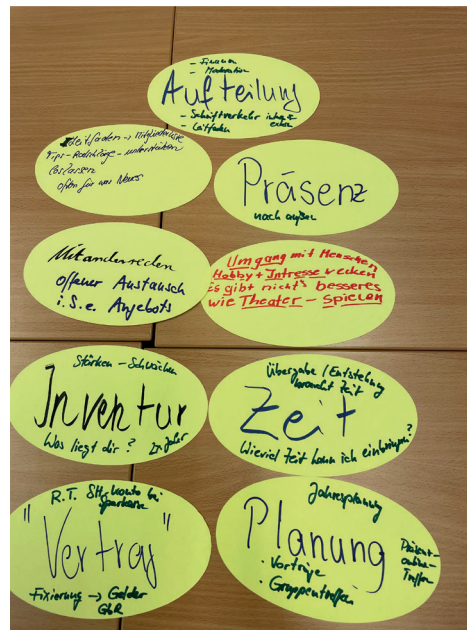 - Finanzen
- Moderation
Aufteilung
- Schriftverkehr intern &
extern
- Leitfaden
Leitfaden → Mitgliederliste
Tips - Ratschläge - unterstützen
Loslassen
offen für was Neues
Präsenz
nach außen
Miteinanderreden
offener Austausch
i.S.e. Angebots
Umgang mit Menschen
Hobby + Intresse wecken
Es gibt nicht's besseres
wie Theater - spielen
Stärken - Schwächen
Inventur
Was liegt dir?
Übergabe / Entstehung
braucht Zeit
Zeit
Wieviel Zeit kann ich einbringen?
R.T. SH konto bei
Sparkasse
"Vertrag"
Fixierung → Gelder
GbR
Jahresplanung
Planung
Präsent-
online-
Treffen
· Vorträge
· Gruppentreffen